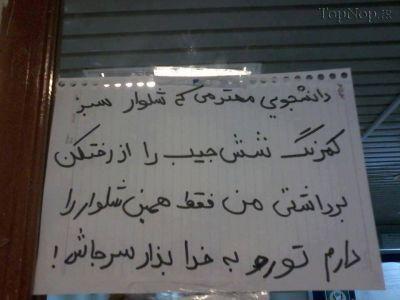 TopNop.ir
دانشجویی محترمی که شلوار سبز
کمرنگ شش جیب را از رختکن
برداشتی من فقط همین شلوار را
دارم تورو به خدا بزار سرجاش!